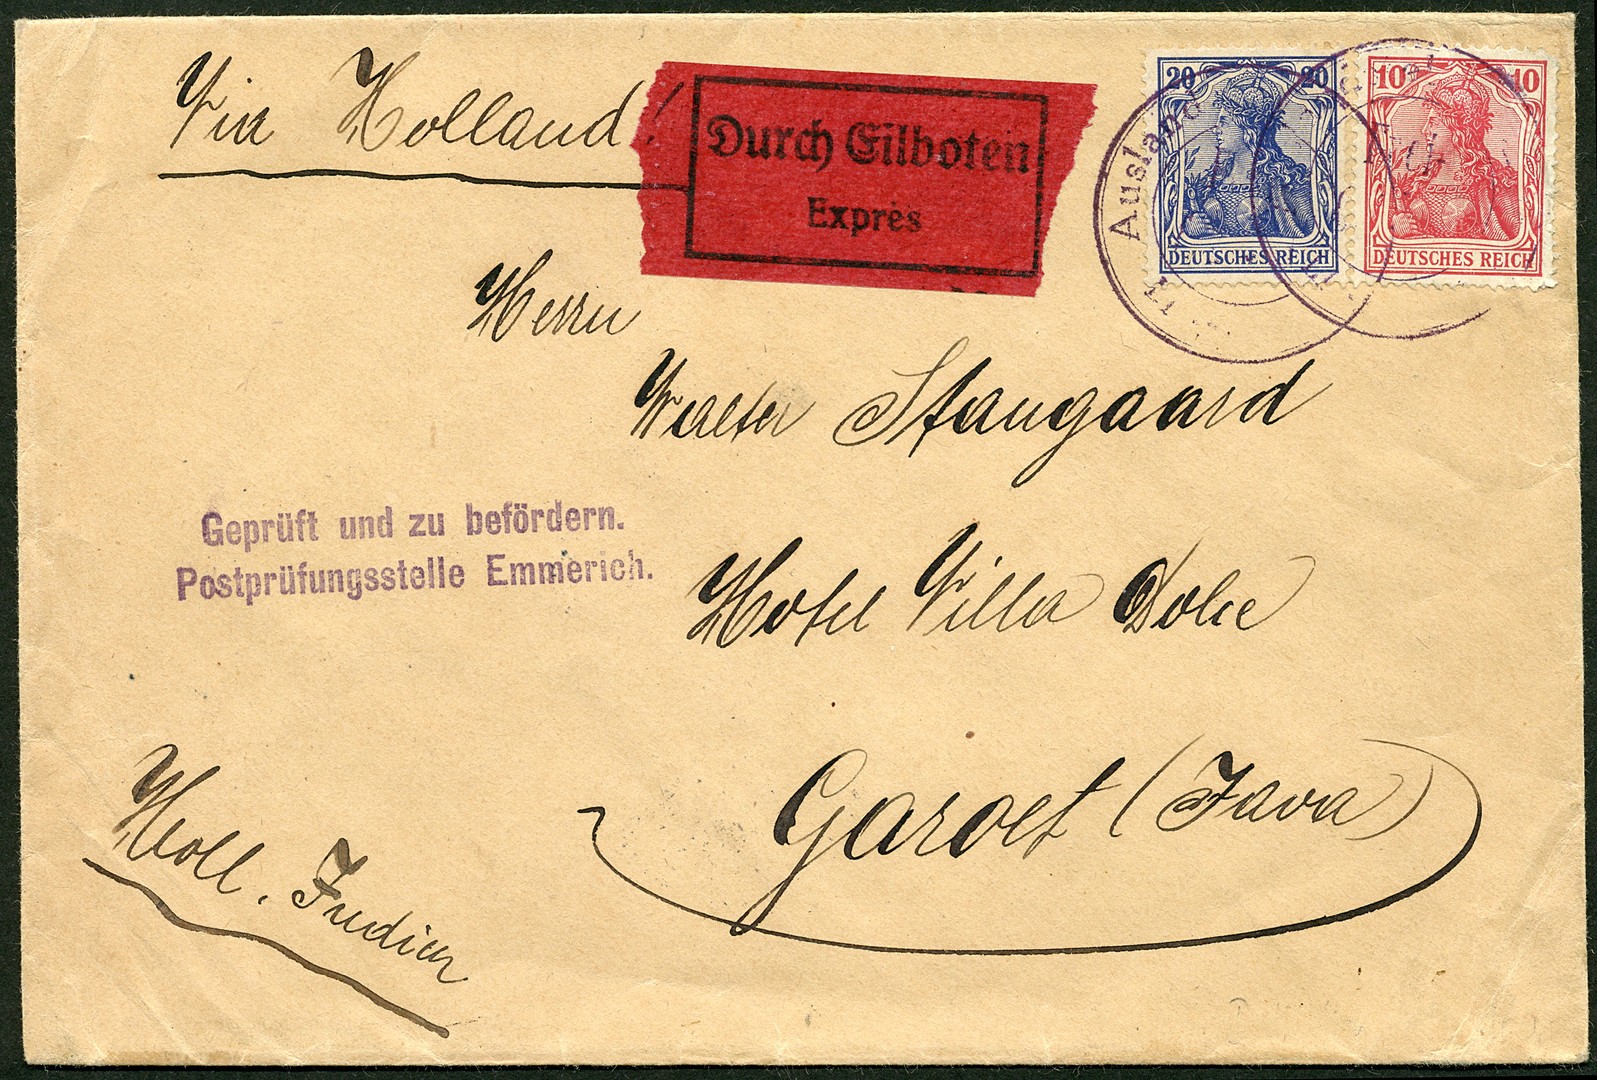 Via Holland!
Durch Eilboten
Exprès
20 20
DEUTSCHES REICH
10 10
DEUTSCHES REICH
Ausland
Herrn
Walter Stangaard
Geprüft und zu befördern.
Postprüfungsstelle Emmerich.
Hotel Villa Dolce
Garoet (Java)
Holl. Indien